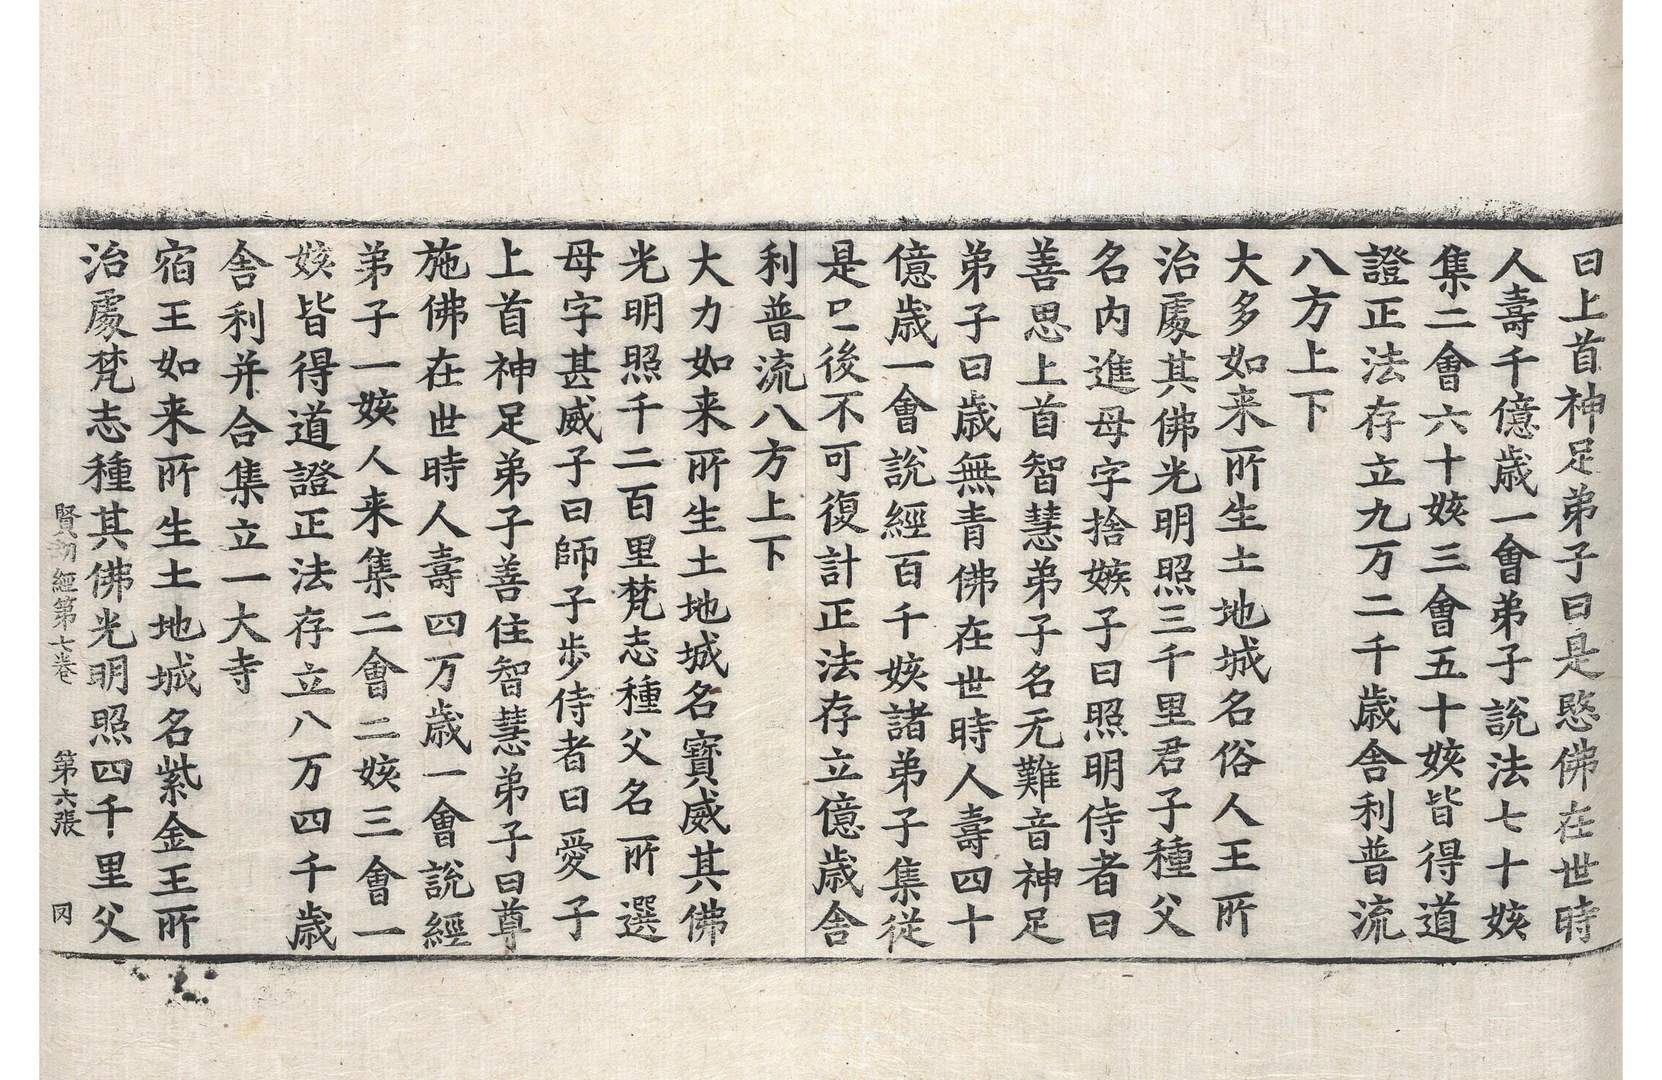 曰上首神足弟子曰是愍佛在世時
人壽千億歳一會弟子說法七十姟
集二會六十姟三會五十姟皆得道
證正法存立九万二千歳舍利普流
八方上下
大多如来所生土地城名俗人王所
治處其佛光明照三千里君子種父
名內進母字捨嫉子曰照明侍者曰
善思上首智慧弟子名无難音神足
弟子曰歳無青佛在世時人壽四十
億歳一會說經百千姟諸弟子集従
是已後不可復計正法存立億歳舍
利普流八方上下
大力如来所生土地城名寶威其佛
光明照千二百里梵志種父名所選
母字甚威子曰師子步侍者曰愛子
上首神足弟子善住智慧弟子曰尊
施佛在世時人壽四万歳一會說經
弟子一姟人来集二會二姟三會一
姟皆得道證正法存立八万四千歳
舍利并合集立一大寺
宿王如来所生土地城名紫金王所
治處梵志種其佛光明照四千里父
賢劫經第七卷　第六張　罔